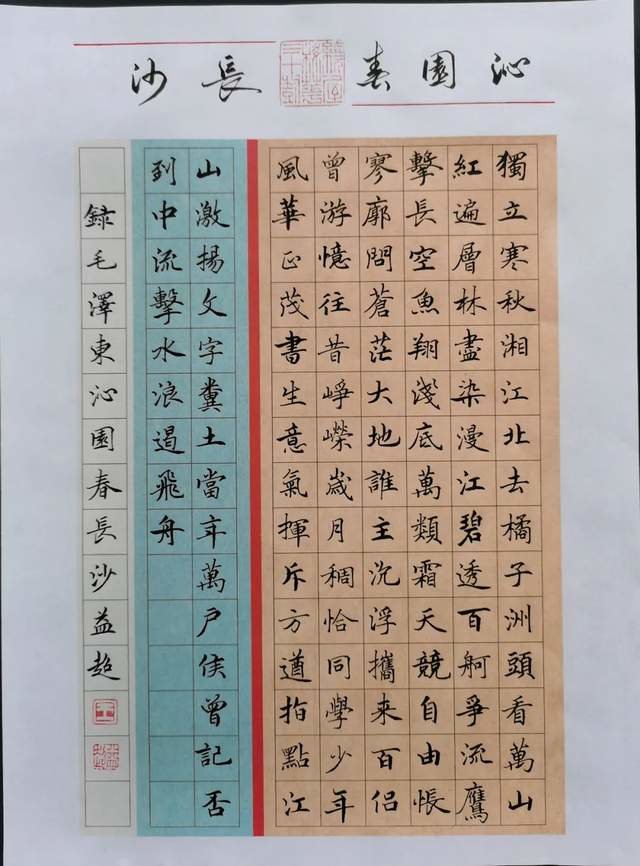 沁園春長沙
獨立寒秋湘江北去橘子洲頭看萬山
紅遍層林盡染漫江碧透百舸爭流鷹
擊長空魚翔淺底萬類霜天競自由悵
寥廓問蒼茫大地誰主沉浮攜來百侶
曾游憶往昔崢嶸歲月稠恰同學少年
風華正茂書生意氣揮斥方遒指點江
山激揚文字糞土當年萬戶侯曾記否
到中流擊水浪遏飛舟
錄毛澤東沁園春長沙益超